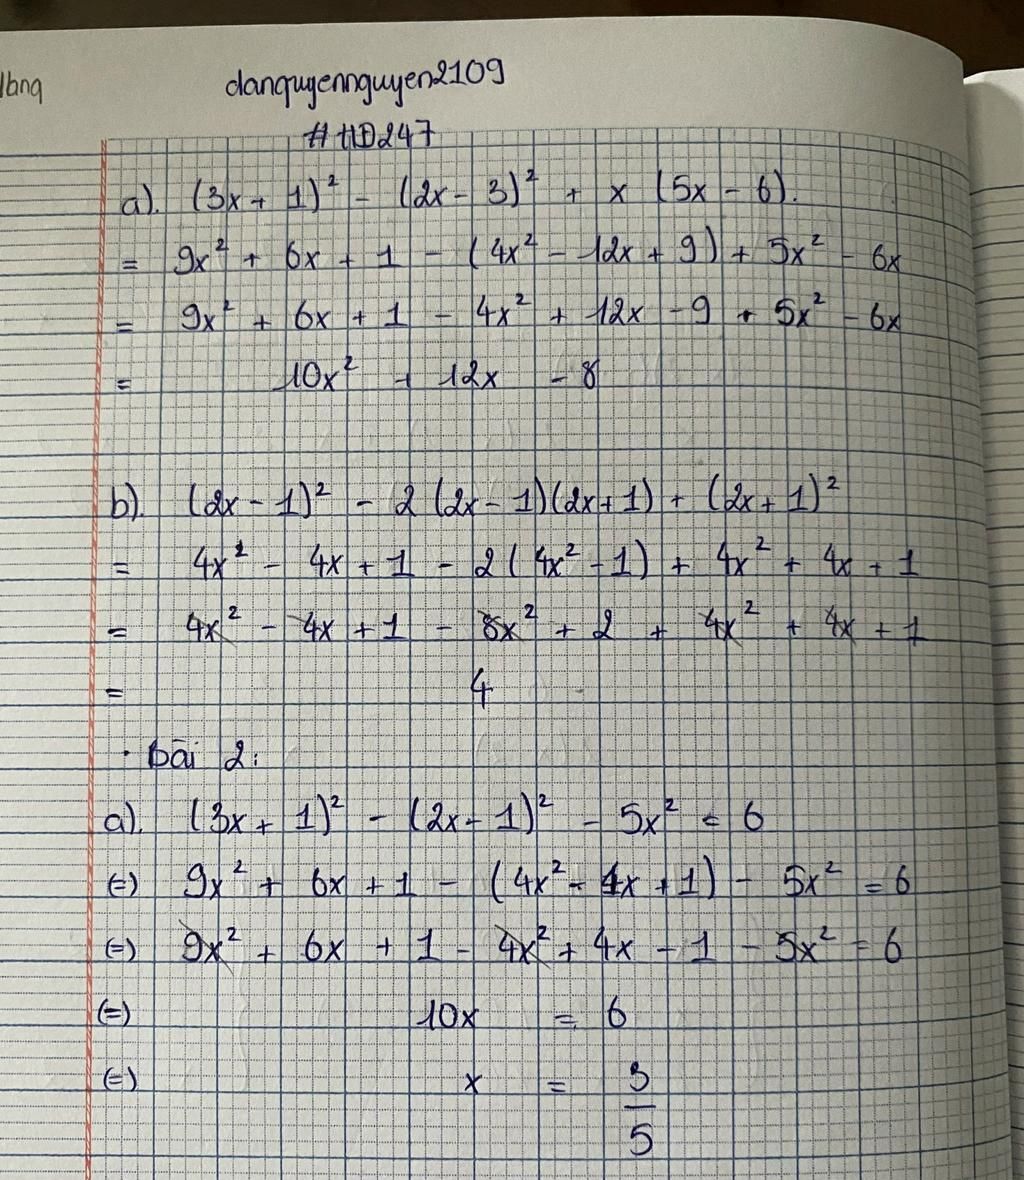 danquyennguyen2109
#HD247
a). (3x + 1)² - (2x - 3)² + x (5x - 6).
= 9x² + 6x + 1 - (4x² - 12x + 9) + 5x² - 6x
= 9x² + 6x + 1 - 4x² + 12x - 9 + 5x² - 6x
= 10x² + 12x - 8
b). (2x - 1)² - 2 (2x - 1)(2x + 1) + (2x + 1)²
= 4x² - 4x + 1 - 2 (4x² - 1) + 4x² + 4x + 1
= 4x² - 4x + 1 - 8x² + 2 + 4x² + 4x + 1
= 4
· bài 2:
a). (3x + 1)² - (2x - 1)² - 5x² = 6
(=) 9x² + 6x + 1 - (4x² - 4x + 1) - 5x² = 6
(=) 9x² + 6x + 1 - 4x² + 4x - 1 - 5x² = 6
(=) 10x = 6
(=) x = 3/5